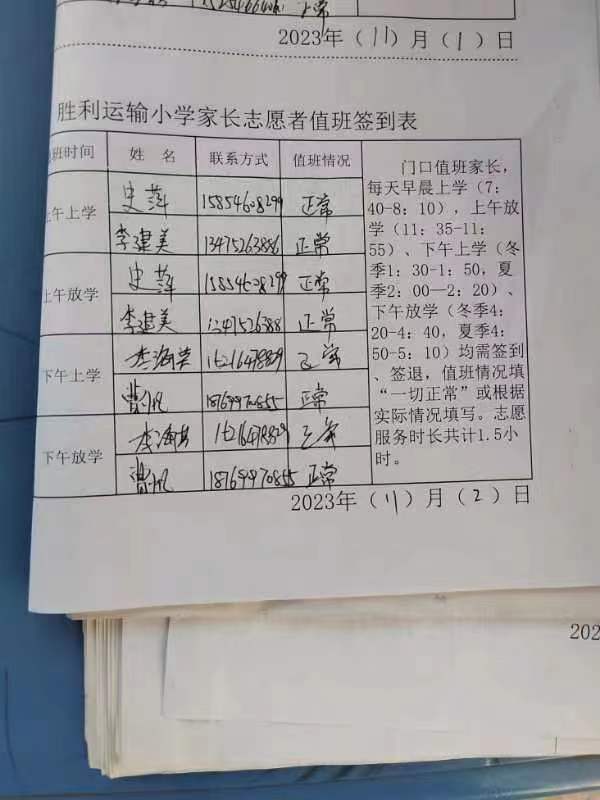 正常
2023年（11）月（1）日
胜利运输小学家长志愿者值班签到表
班时间 姓 名 联系方式 值班情况
上午上学 史萍 15854608299 正常
李建美 13475263886 正常
上午放学 史萍 15854608299 正常
李建美 1347526388 正常
下午上学 李海英 正常
曹帆 18769970855 正常
下午放学 李海英 正常
曹帆 18769970855 正常
门口值班家长，
每天早晨上学（7：
40-8：10），上午放
学（11：35-11：
55）、下午上学（冬
季1：30-1：50，夏
季2：00—2：20）、
下午放学（冬季4：
20-4：40，夏季4：
50-5：10）均需签到
、签退，值班情况填
“一切正常”或根据
实际情况填写。志愿
服务时长共计1.5小
时。
2023年（11）月（2）日
202